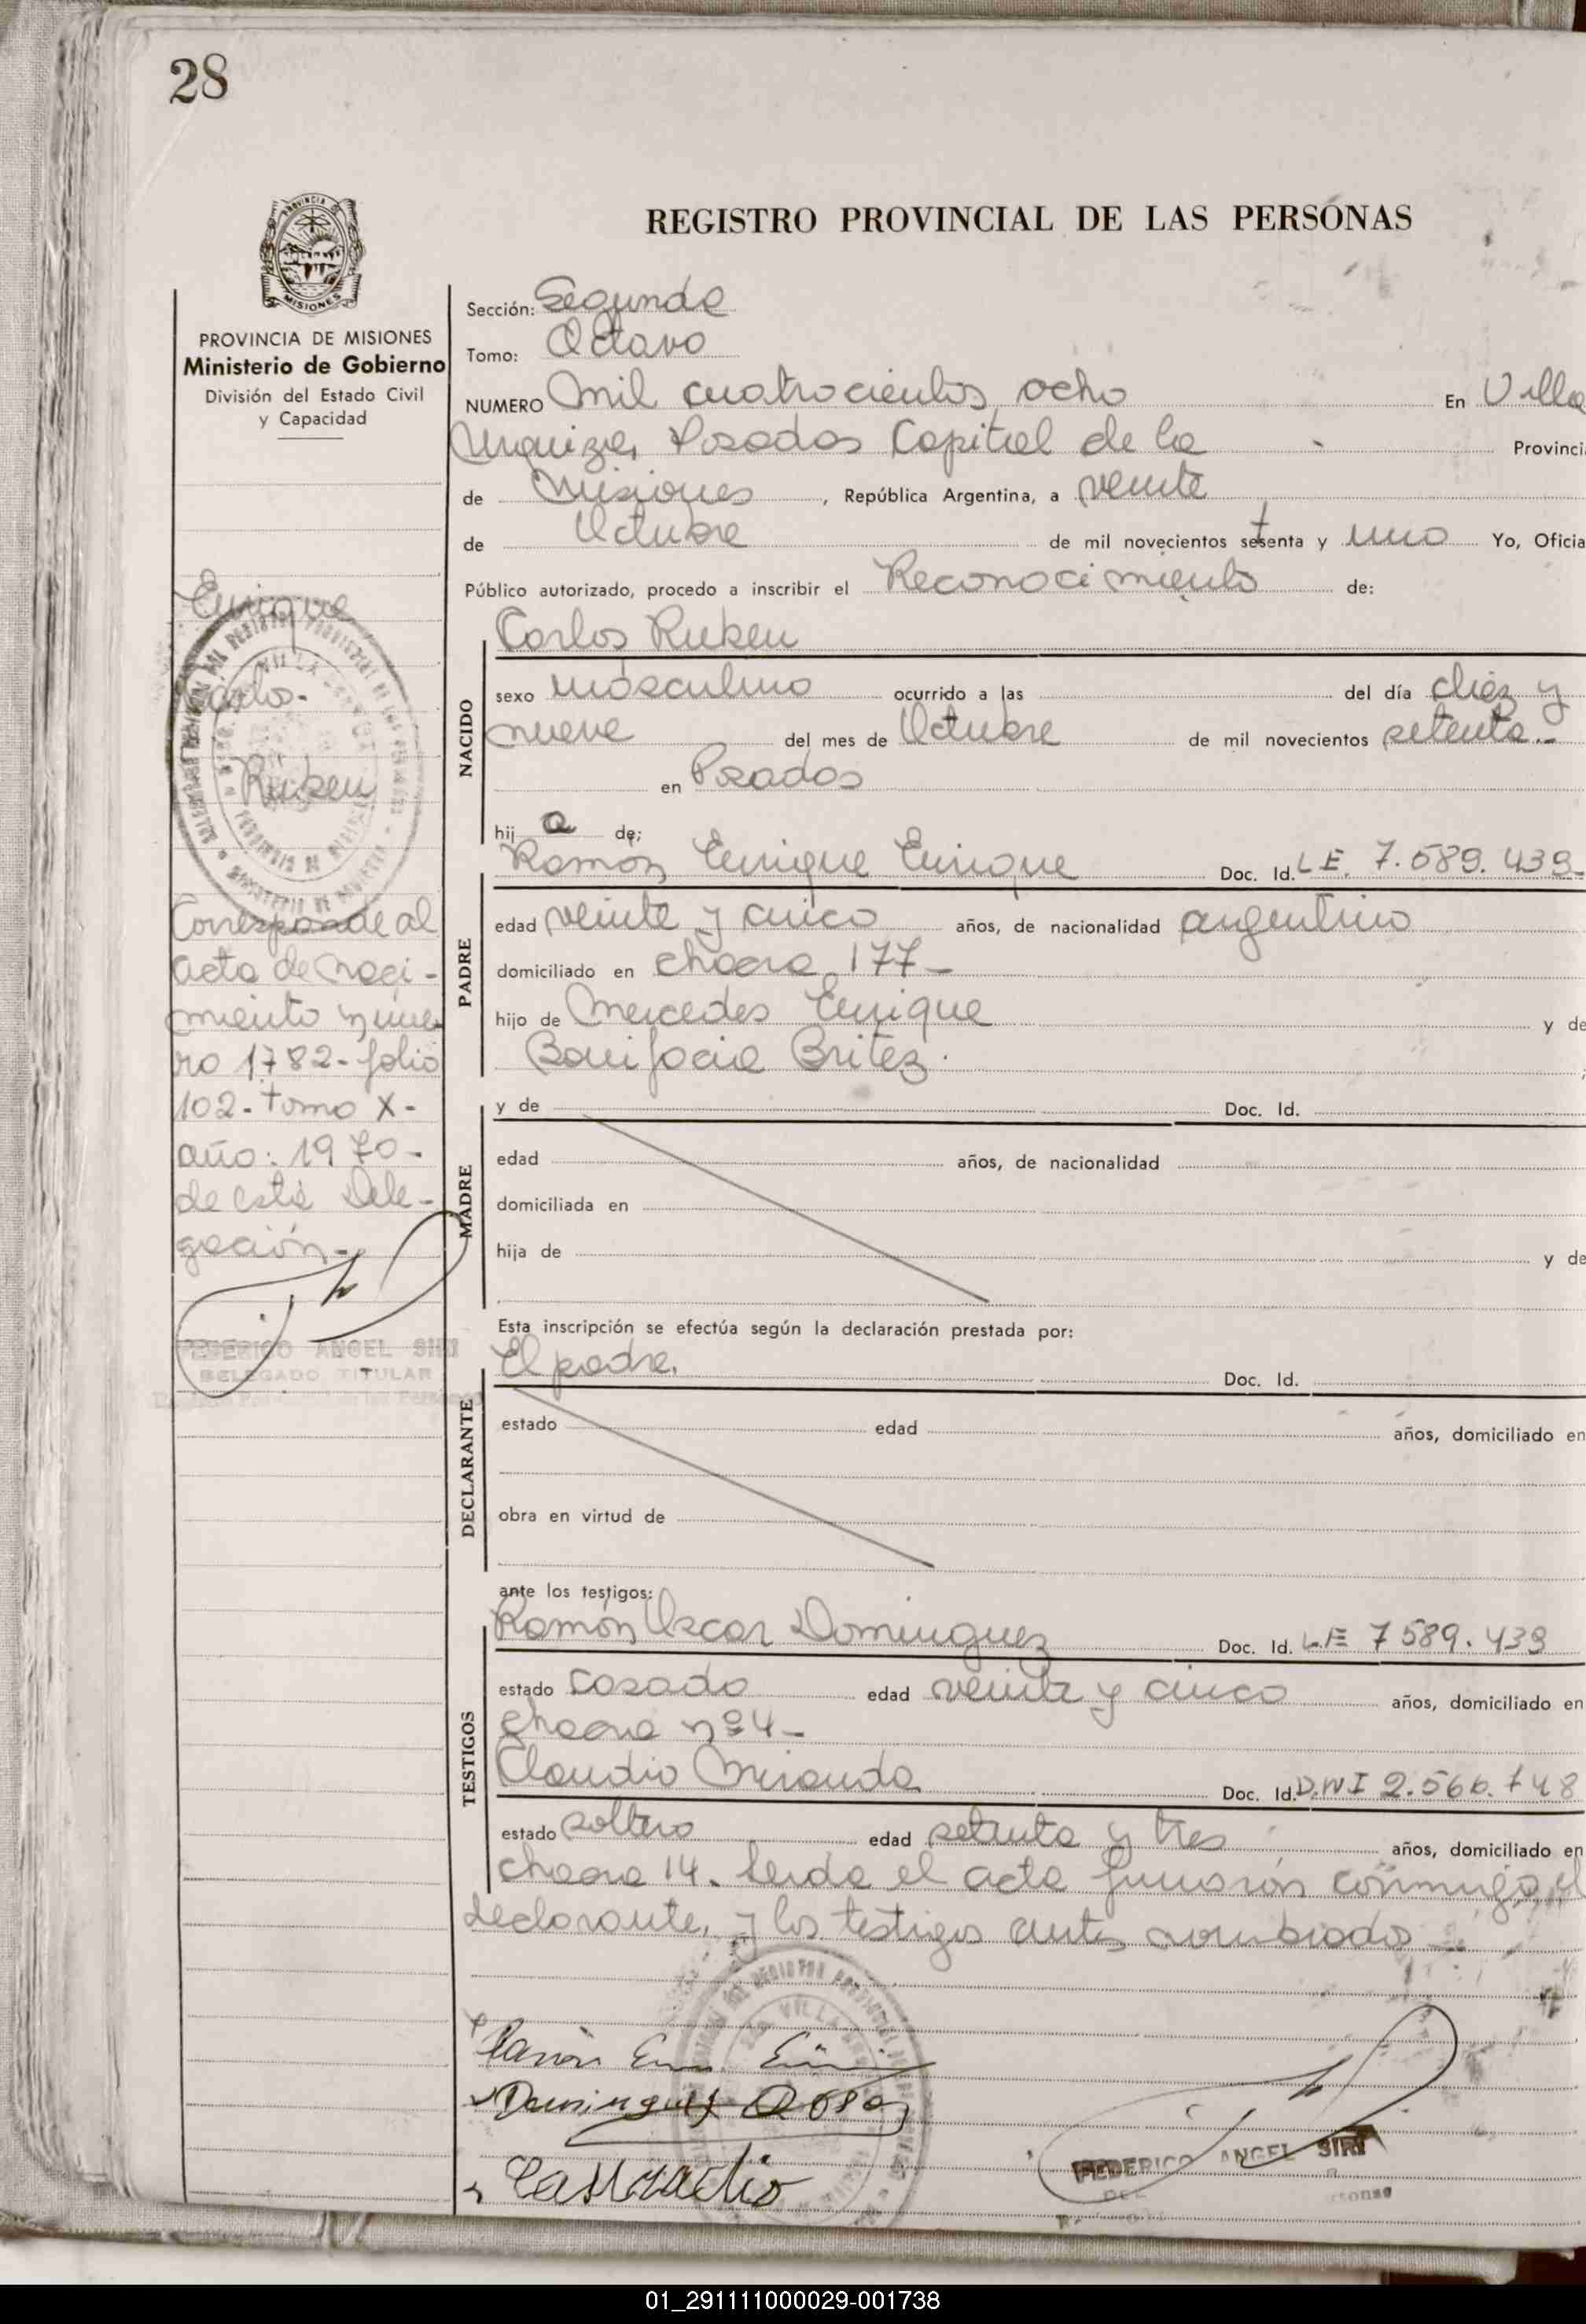 28
REGISTRO PROVINCIAL DE LAS PERSONAS
PROVINCIA DE MISIONES
Ministerio de Gobierno
División del Estado Civil
y Capacidad
Enrique
Carlos-
Ruben
Corresponde al
acta de naci-
miento núme
ro 1782- folio
102- tomo X-
año: 1970-
de esta Dele-
gación-
FEDERICO ANGEL SIRI
DELEGADO TITULAR
Sección: Segunda
Tomo: Octavo
NUMERO Mil cuatrocientos ocho En Villa
Urquiza, Posadas Capital de la Provinci
de Misiones, República Argentina, a veinte
de Octubre de mil novecientos setenta y uno Yo, Oficia
Público autorizado, procedo a inscribir el Reconocimiento de:
NACIDO
Carlos Ruben
sexo masculino ocurrido a las del día diez y
nueve del mes de Octubre de mil novecientos setenta.-
en Posadas
hij o de:
PADRE
Ramón Enrique Enrique Doc. Id. L E. 7.589.439-
edad veinte y cinco años, de nacionalidad argentino
domiciliado en chacra 177-
hijo de Mercedes Enrique y de
Bonifacia Britez.
MADRE
y de Doc. Id.
edad años, de nacionalidad
domiciliada en
hija de y de
Esta inscripción se efectúa según la declaración prestada por:
DECLARANTE
El padre. Doc. Id.
estado edad años, domiciliado en
obra en virtud de
ante los testigos:
TESTIGOS
Ramón Oscar Dominguez Doc. Id. L.E 7589.439
estado casado edad veinte y cinco años, domiciliado en
chacra nº 4-
Claudio Miranda Doc. Id. D.N I 2.566.748
estado soltero edad setenta y tres años, domiciliado en
chacra 14. Leida el acta firmaron conmigo, el
declarante, y los testigos antes nombrados
Dominguez
FEDERICO ANGEL SIRI
01_291111000029-001738